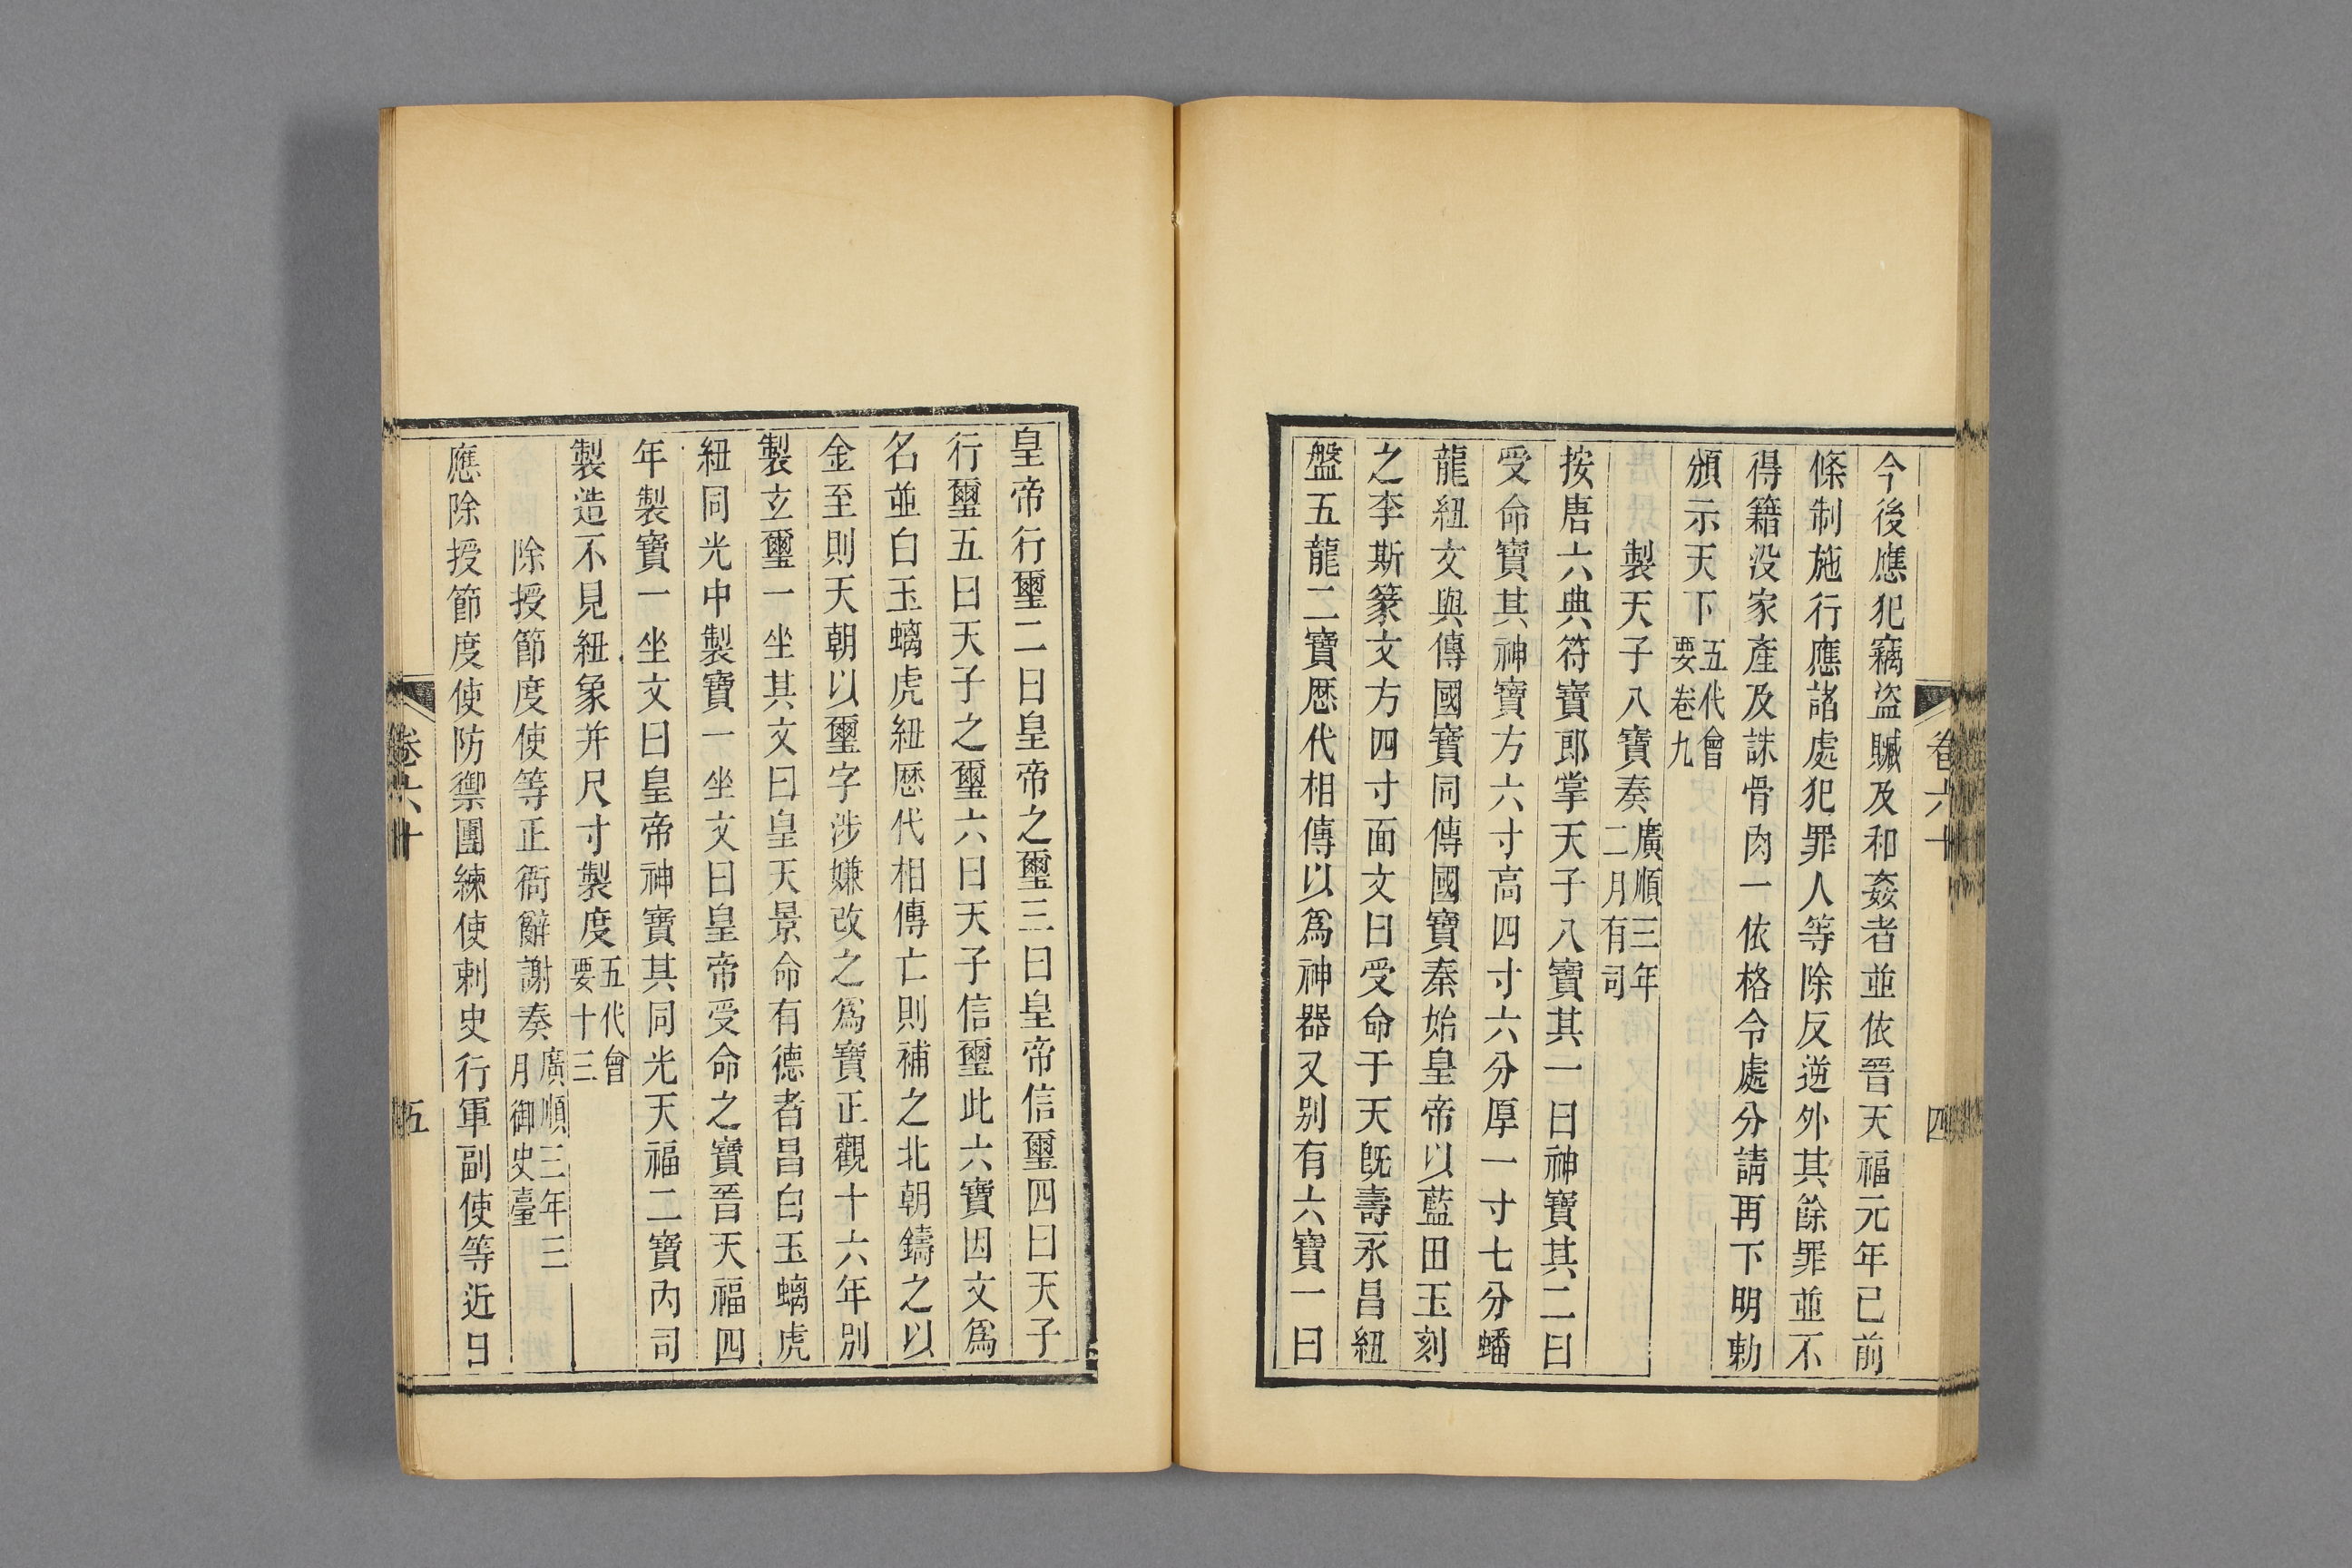 今後應犯竊盜贓及和姦者並依晉天福元年已前
條制施行應諸處犯罪人等除反逆外其餘罪並不
得籍沒家產及誅骨肉一依格令處分請再下明勅
頒示天下五代會要卷九
製天子八寶奏廣順三年二月有司
按唐六典符寶郎掌天子八寶其一曰神寶其二曰
受命寶其神寶方六寸高四寸六分厚一寸七分蟠
龍紐文與傳國寶同傳國寶秦始皇帝以藍田玉刻
之李斯篆文方四寸面文曰受命于天旣壽永昌紐
盤五龍二寶歷代相傳以爲神器又别有六寶一曰
卷六十
四
皇帝行璽二曰皇帝之璽三曰皇帝信璽四曰天子
行璽五曰天子之璽六曰天子信璽此六寶因文爲
名並白玉螭虎紐歷代相傳亡則補之北朝鑄之以
金至則天朝以璽字涉嫌改之爲寶正觀十六年别
製玄璽一坐其文曰皇天景命有德者昌白玉螭虎
紐同光中製寶一坐文曰皇帝受命之寶晉天福四
年製寶一坐文曰皇帝神寶其同光天福二寶內司
製造不見紐象并尺寸製度五代會要十三
除授節度使等正衙辭謝奏廣順三年三月御史臺
應除授節度使防禦團練使刺史行軍副使等近日
卷六十
五